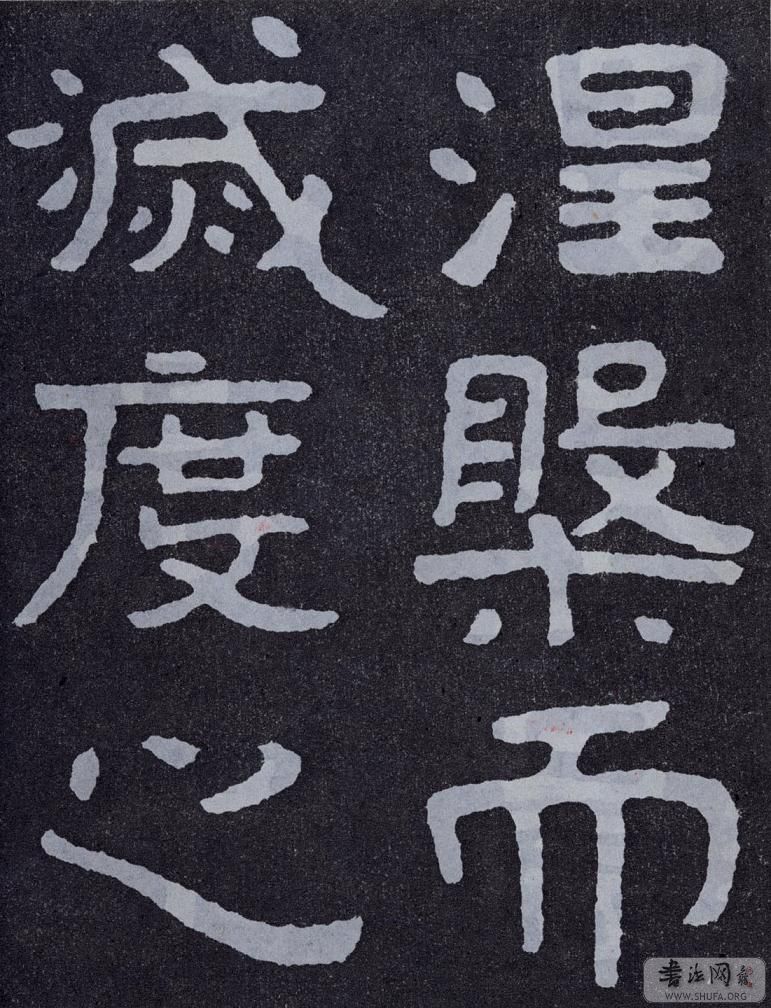 涅槃而
滅度之
書法网
WWW.SHUFA.ORG